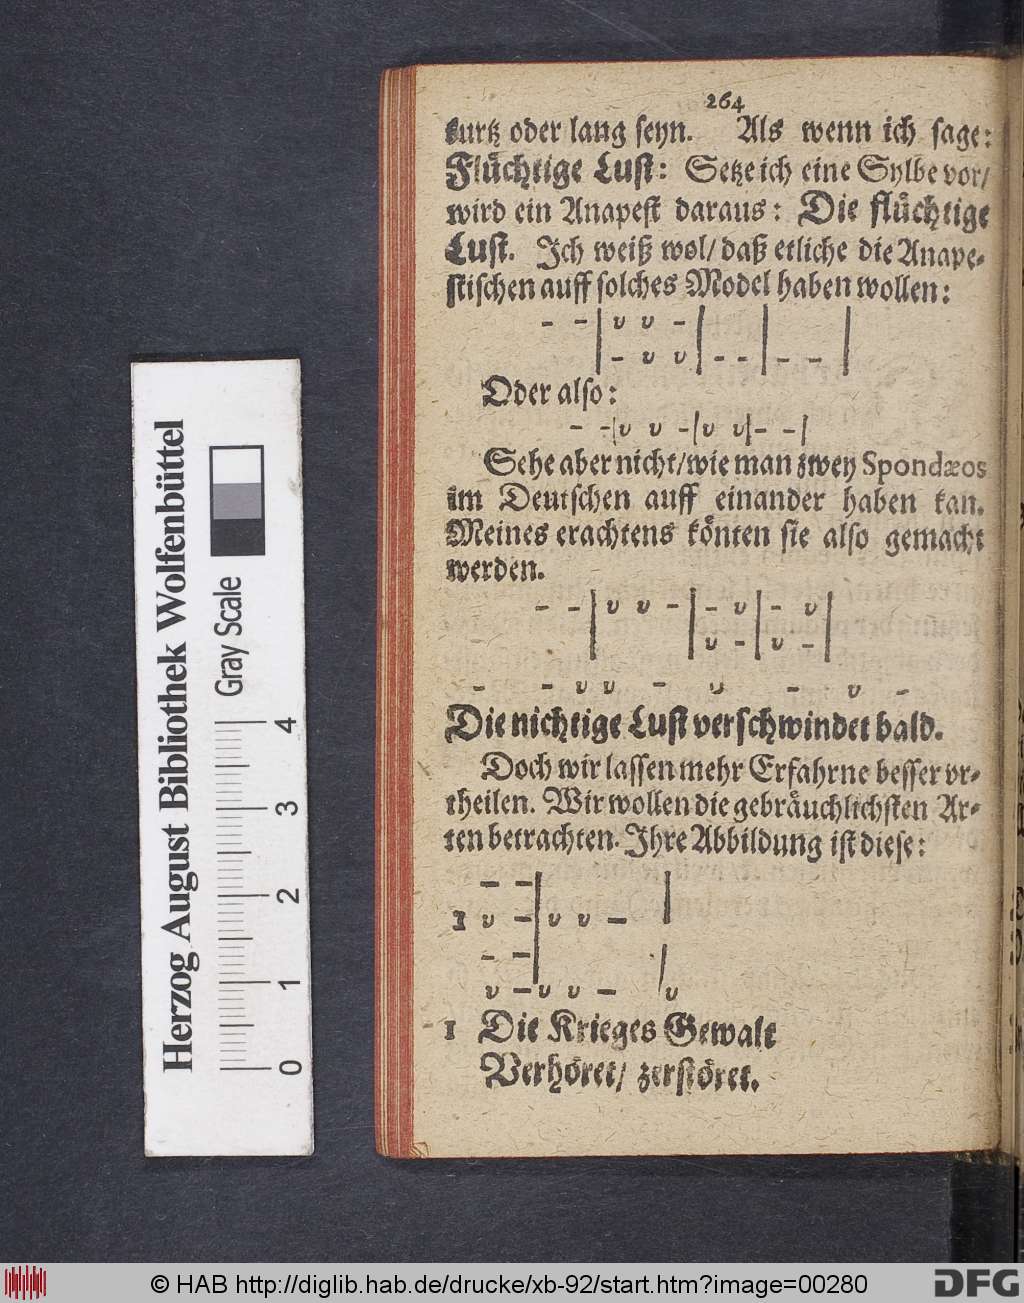 264
kurtz oder lang seyn. Als wenn ich sage:
Flüchtige Lust: Setze ich eine Sylbe vor/
wird ein Anapest daraus: Die flüchtige
Lust. Ich weiß wol/ daß etliche die Anape-
stischen auff solches Model haben wollen:
– – | υ υ – | | |
| – υ υ | – – | – – |
Oder also:
– – | υ υ – | υ υ | – – |
Sehe aber nicht/ wie man zwey Spondæos
im Deutschen auff einander haben kan.
Meines erachtens könten sie also gemacht
werden.
– – | υ υ – | – υ | – υ |
| | υ – | υ – |
– – υ υ – υ – υ –
Die nichtige Lust verschwindet bald.
Doch wir lassen mehr Erfahrne besser vr-
theilen. Wir wollen die gebräuchlichsten Ar-
ten betrachten. Ihre Abbildung ist diese:
– – | |
1 υ – | υ υ – |
– – | |
υ – υ υ – υ
1 Die Krieges Gewalt
Verhöret/ zerstöret.
Herzog August Bibliothek Wolfenbüttel
Gray Scale
0 1 2 3 4
© HAB http://diglib.hab.de/drucke/xb-92/start.htm?image=00280
DFG